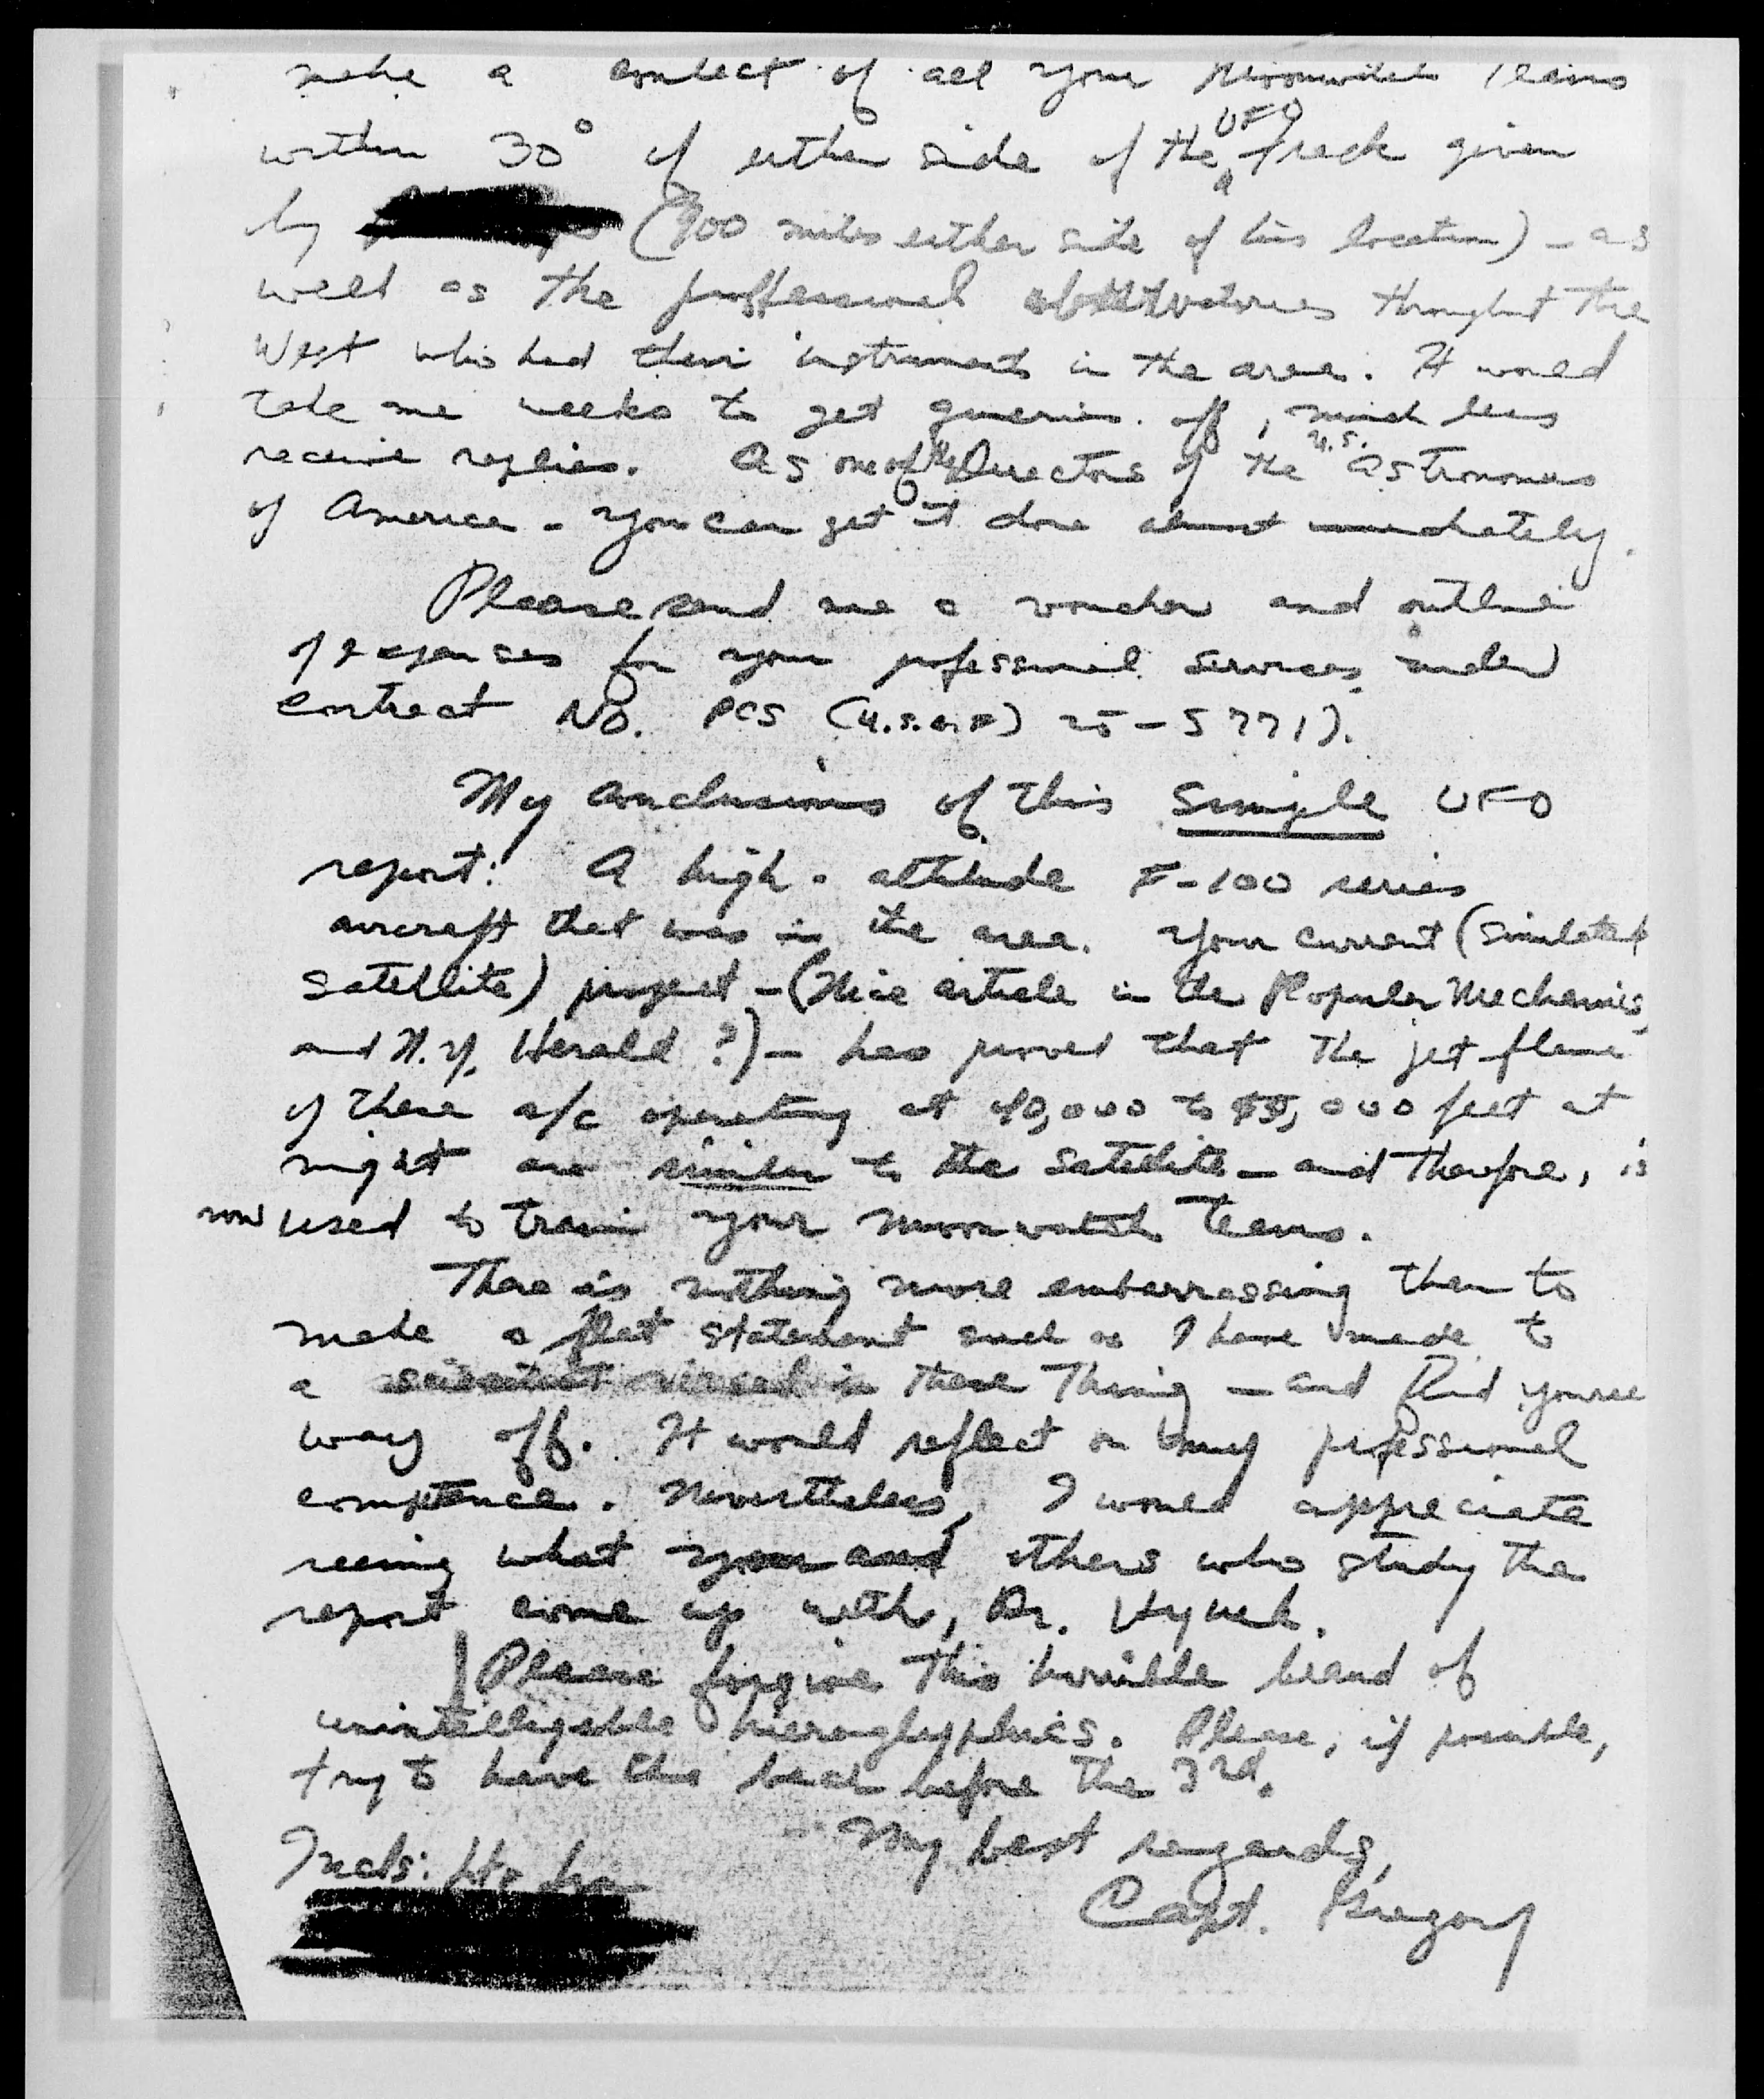 make a contact of all your Moonwatch Teams
within 30° of either side of the UFO track given
by (900 miles either side of his location) - as
well as the proffessional observatories throughout the
West who had their instruments in the area. It would
take me weeks to get queries off, much less
receive replies. As one of the Directors of the U.S. Astronomers
of America - you can get it done almost immediately.
Please send me a voucher and outline
of expenses for your professional services under
contract No. PCS (U.S.A.F) 25-5771).
My conclusions of this simple UFO
report: A high-altitude F-100 series
aircraft that was in the area. Your current (simulated
satellite) project - (Nice article in the Popular Mechanics,
and N.Y. Herald?) - has proved that the jet flame
of these a/c operating at 40,000 to 55,000 feet at
night are similar to the satellite - and therefore, is
now used to train your moonwatch teams.
There is nothing more embarrassing than to
make a flat statement such as I have made to
a scientist versed in these Thing - and find yourse
way off. It would reflect on my professional
competence. Nevertheless, I would appreciate
seeing what you and others who study the
report come up with, Dr. Hynek.
Please forgive this horrible brand of
unintelligeble hieroglyphics. Please, if possible,
try to have this back before the 3rd.
My best regards,
Incls: Ltr
Capt. Gregory